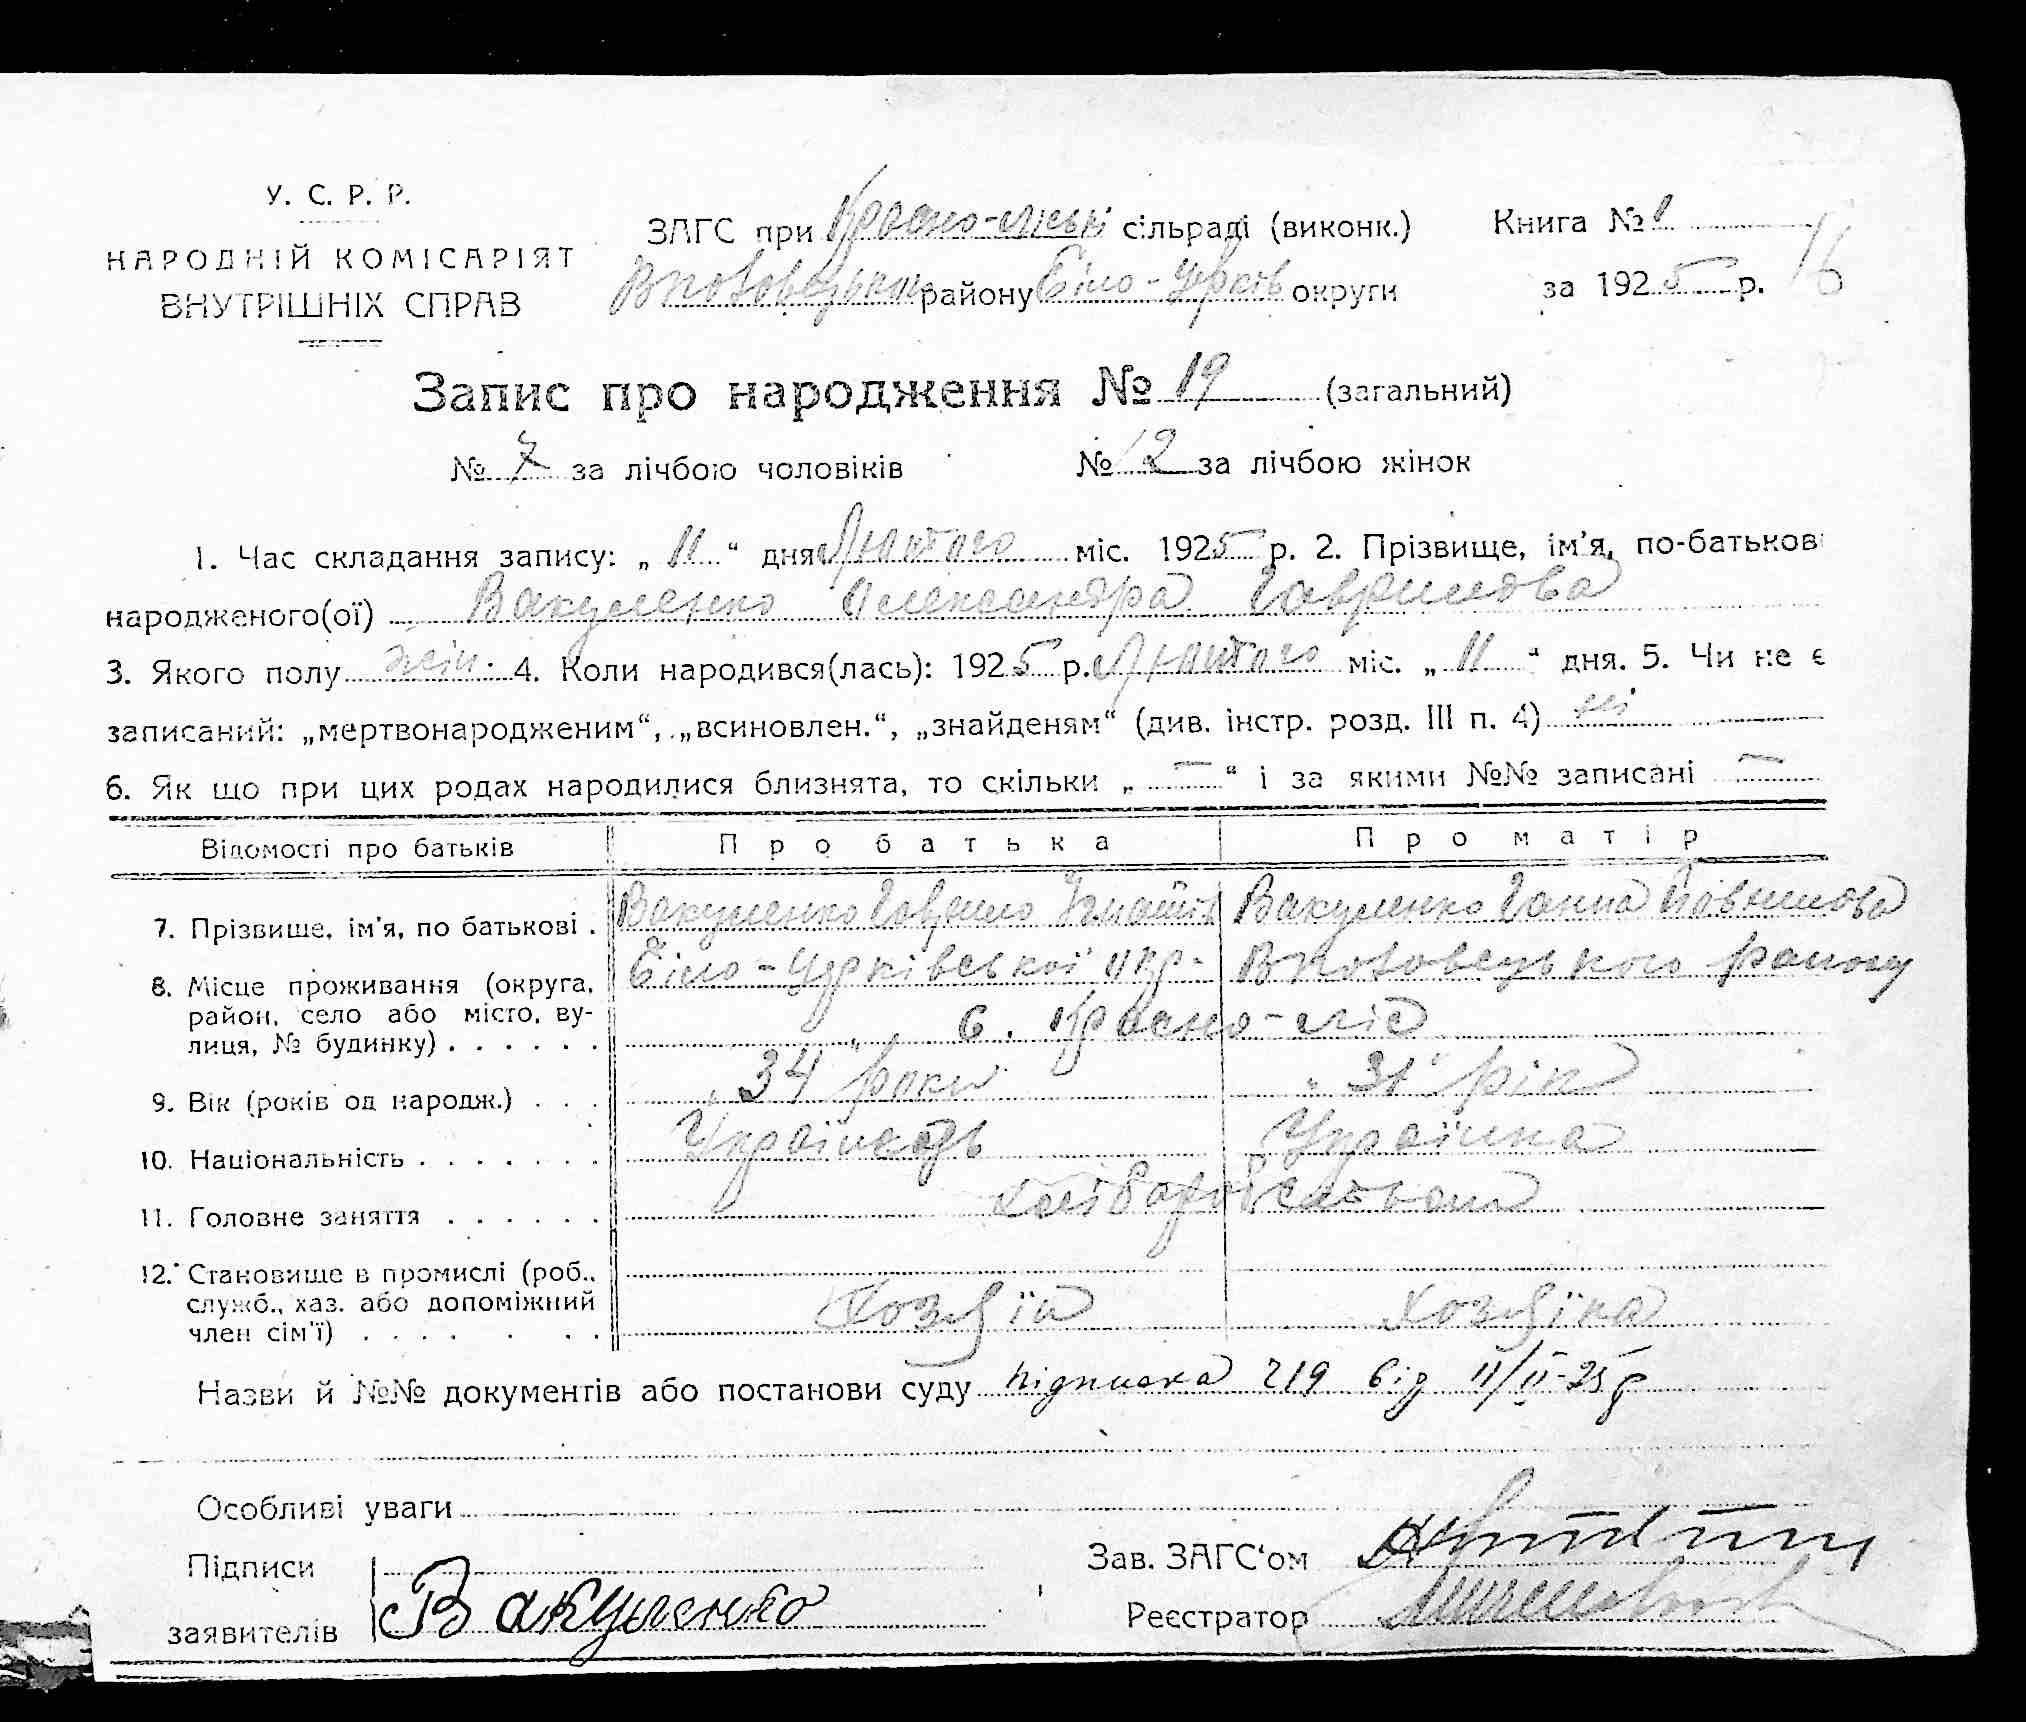 У. С. Р. Р.
НАРОДНІЙ КОМІСАРІЯТ
ВНУТРІШНІХ СПРАВ
ЗАГС при Красно-ліські сільраді (виконк.) Книга № 1
району Біло-Церків округи за 1925 р. 16
Запис про народження № 19 (загальний)
№ 7 за лічбою чоловіків № 12 за лічбою жінок
1. Час складання запису: „ 11 “ дня Лютого міс. 1925 р. 2. Прізвище, ім’я, по-батькові
народженого(ої) Вакуленко Олександра Гаврилова
3. Якого полу жін. 4. Коли народився(лась): 1925 р. Лютого міс. „ 11 “ дня. 5. Чи не є
записаний: „мертвонародженим“, „всиновлен.“, „знайденям“ (див. інстр. розд. III п. 4) ні
6. Як що при цих родах народилися близнята, то скільки „ — “ і за якими №№ записані —
Відомості про батьків Про батька Про матір
7. Прізвище, ім’я, по батькові . Вакуленко Гаврило Вакуленко Ганна
8. Місце проживання (округа, Біло-Церківської окр. району
район, село або місто, ву- с. Красно-ліс
лиця, № будинку) . . . . . .
9. Вік (років од народж.) . . . „ 34 “ роки „ 31 “ рік
10. Національність . . . . . . . Українець Українка
11. Головне заняття . . . . . . хліборобство
12. Становище в промислі (роб.,
служб., хаз. або допоміжний Хозяїн Хозяїка
член сім’ї) . . . . . . .
Назви й №№ документів або постанови суду підписка 219 від 11/II-25 р
Особливі уваги
Підписи Зав. ЗАГС‘ом
заявителів Вакуленко Реєстратор